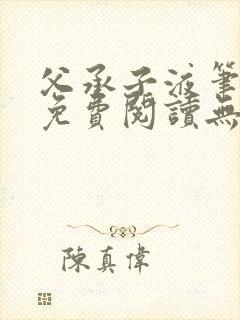 父承子液筆
免費閱讀無
陳真偉